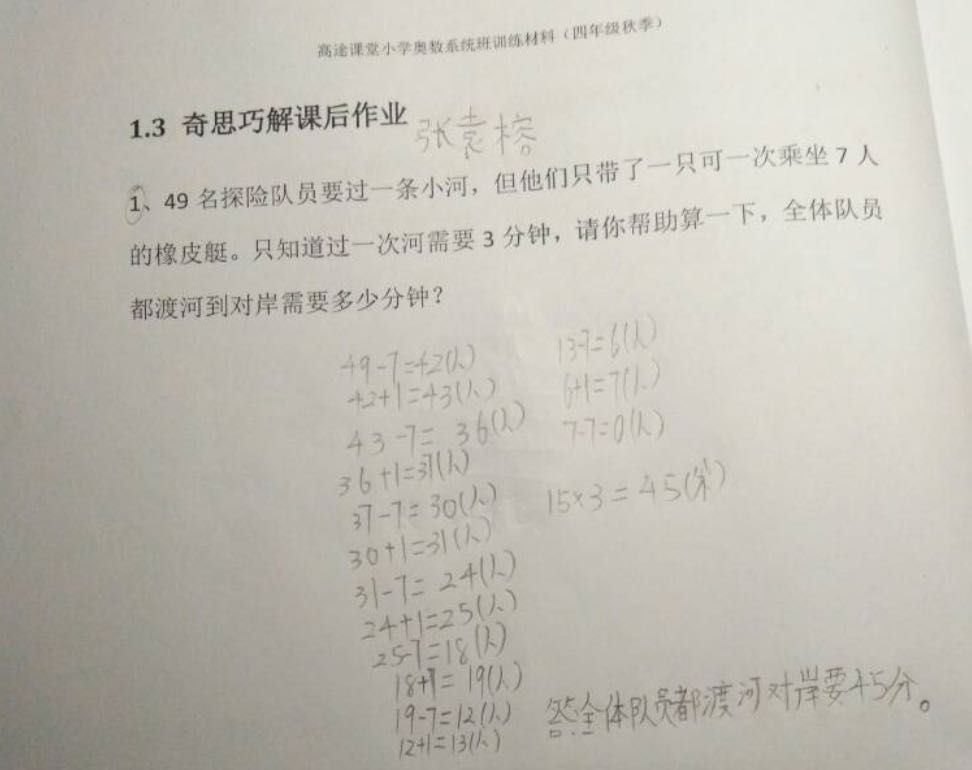 高途课堂小学奥数系统班训练材料（四年级秋季）
1.3 奇思巧解课后作业 张袁榕
1、49 名探险队员要过一条小河，但他们只带了一只可一次乘坐 7 人
的橡皮艇。只知道过一次河需要 3 分钟，请你帮助算一下，全体队员
都渡河到对岸需要多少分钟？
49-7=42(人)
42+1=43(人)
43-7=36(人)
36+1=37(人)
37-7=30(人)
30+1=31(人)
31-7=24(人)
24+1=25(人)
25-7=18(人)
18+1=19(人)
19-7=12(人)
12+1=13(人)
13-7=6(人)
6+1=7(人)
7-7=0(人)
15×3=45(分)
答:全体队员都渡河对岸要45分。